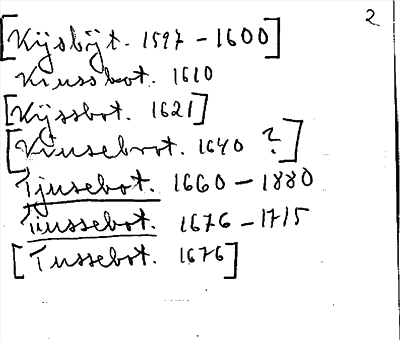 2
[Kijsbÿt. 1597-1600]
Kiussbot. 1610
[Kijssbot. 1621]
[Kiusebrot. 1640 ?]
Tjusebot. 1660-1880
Tiussebot. 1676-1715
[Tussebot. 1676]